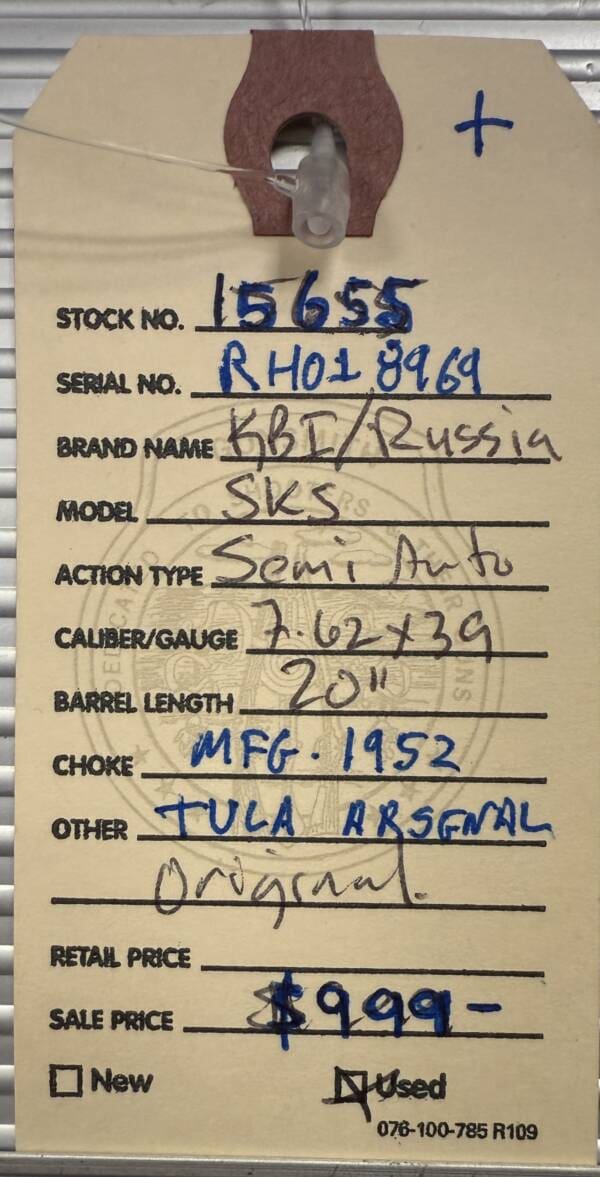 +
STOCK NO. 15655
SERIAL NO. RH018969
BRAND NAME KBI/Russia
MODEL SKS
ACTION TYPE Semi Auto
CALIBER/GAUGE 7.62x39
BARREL LENGTH 20"
CHOKE MFG. 1952
OTHER TULA ARSENAL
Original.
RETAIL PRICE
SALE PRICE $999-
New Used
076-100-785 R109